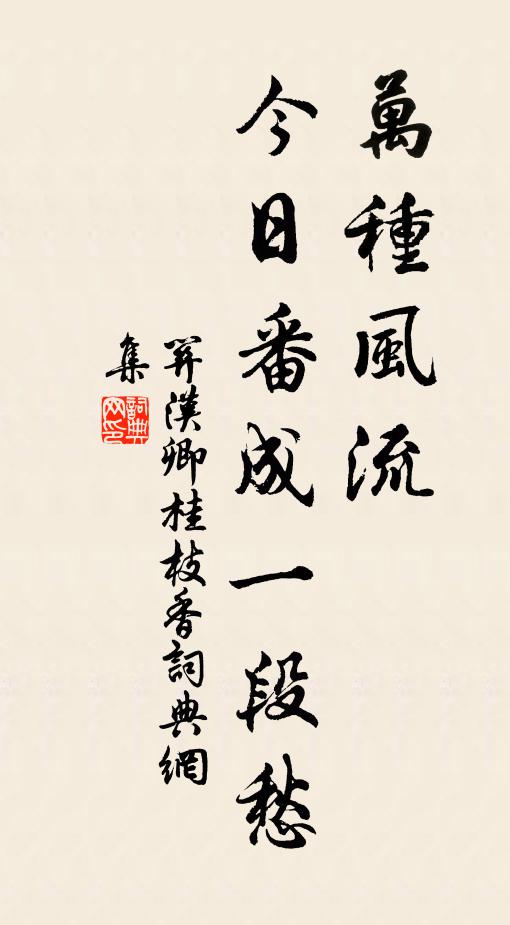 萬種風流
今日番成一段愁
關漢卿桂枝香詞典網
集
詞典
网印